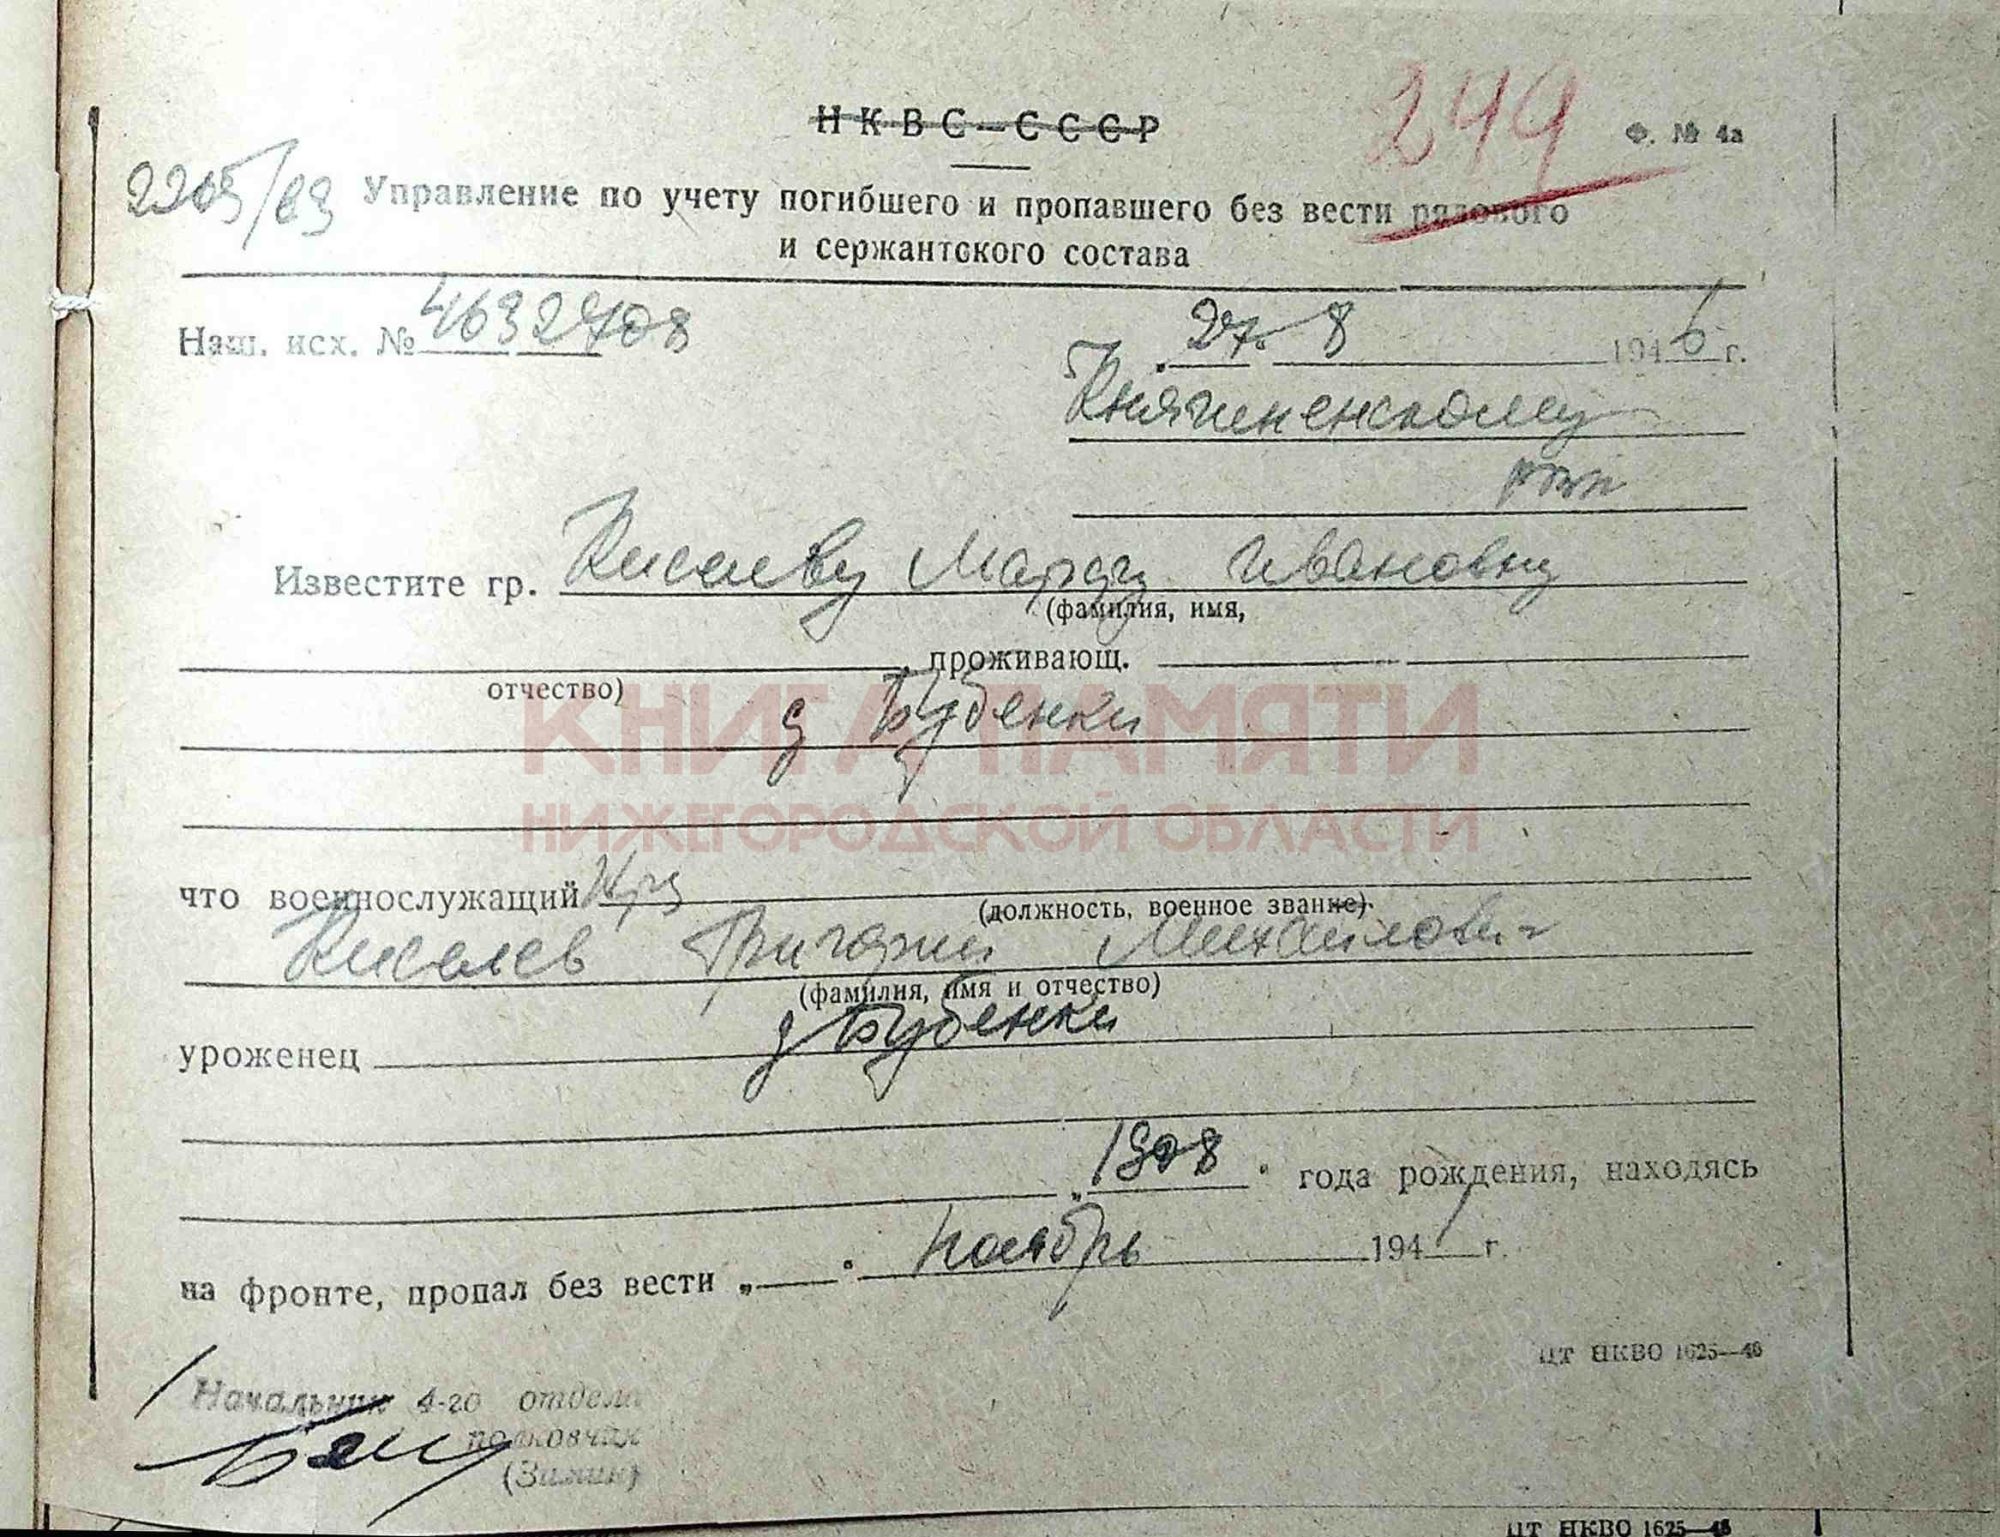 НКВС—СССР
299
Ф. № 4а
Управление по учету погибшего и пропавшего без вести рядового
и сержантского состава
Наш. исх. № 4632708
27. 8 1946 г.
Княгиненскому
рвк
Известите гр. Киселеву Марфу Ивановну
(фамилия, имя,
, проживающ.
отчество)
д Бубенки
КНИГА ПАМЯТИ
НИЖЕГОРОДСКОЙ ОБЛАСТИ
что военнослужащий
(должность, военное звание)
Киселев Григории Михаилович
(фамилия, имя и отчество)
уроженец д Бубенки
„1908" года рождения, находясь
на фронте, пропал без вести „ " ноябрь 1941 г.
ЦТ НКВО 1625—46
Начальник 4-го отдела
полковник
ЦТ НКВО 1625—46